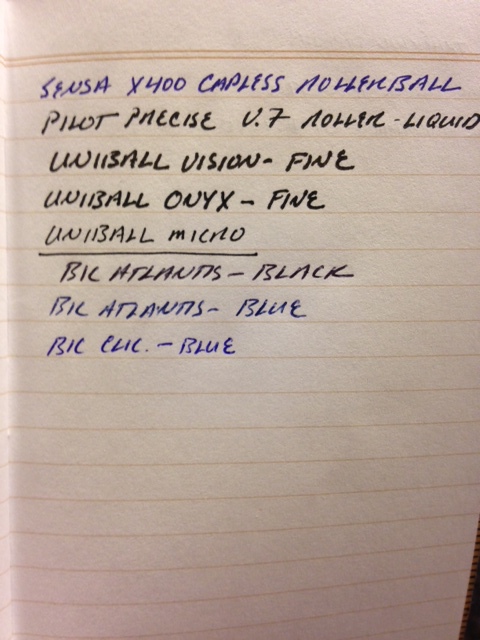 SENSA X400 CAPLESS ROLLERBALL
PILOT PRECISE V.7 ROLLER - LIQUID
UNIIBALL VISION - FINE
UNIBALL ONYX - FINE
UNIBALL MICRO
BIC ATLANTIS - BLACK
BIC ATLANTIS - BLUE
BIC CLIC. - BLUE